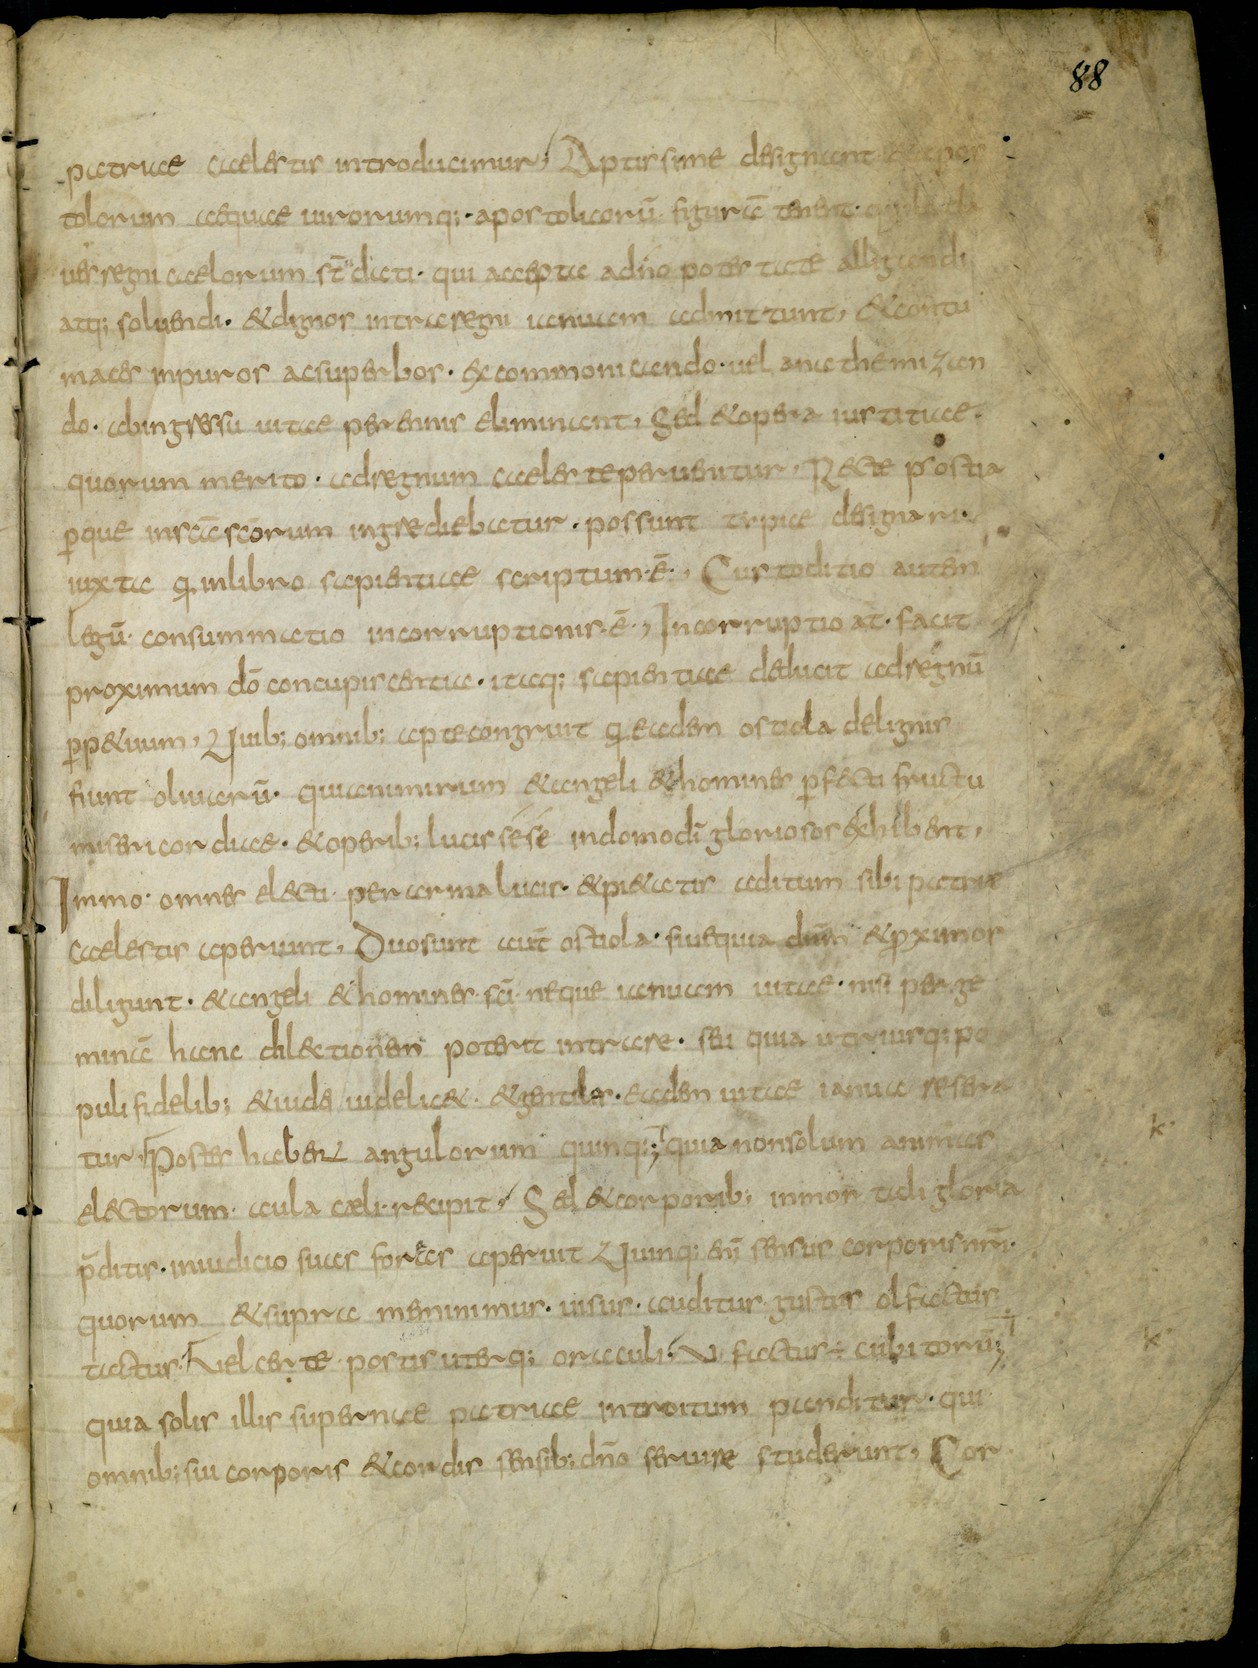 88
patriae caelestis introducimur, Aptissime designant & apos
tolorum atquae uirorumq; apostolicorū figurā tenent qui cla
ues regni caelorum st̄ dicti· qui accepta a dn̄o potestate alligandi
atq; soluendi· & dignos intra regni ianuam admittunt, & contu
maces inpuros ac superbos· excommonicando· uel anathemizan
do· ab ingressu uitae perennis eliminant, Sed & opera iustitiae·
quorum merito· ad regnum caeleste peruenitur, Recte p̄ ostia
ꝑ que in sc̄a sc̄orum ingrediebatur· possunt typice designari·
iuxta qđ in libro sapientiae scriptum·ē·, Custoditio autem
legū· consummatio incorruptionis·ē·, Incorruptio at· facit
proximum dō concupiscentia· itaq; sapientiae deducit ad regnū
ꝑp&uum, Quib; omnib; apte congruit qđ eadem ostiola de lignis
fiunt oliuarū· quia nimirum & angeli & homines ꝑfecti fructu
misericordiae· & operib; lucis sese in domo dī gloriosos exhibent,
Immo· omnes electi· per arma lucis· & pi&atis aditum sibi patriae
caelestis aperiunt, Duo sunt aut̄ ostiola· siue quia dn̄m & ꝓximos
diligunt· & angeli & homines· sc̄i· neque ianuam uitae· nisi per ge
minā hanc dilectionem poterit intrare· seu quia utriusq; po
puli fidelib; & iudei uidelic&· & gentiles· eadem uitae ianua resera
tur, Postes habens angulorum quinq;, quia non solum animas
electorum· aula caeli· recipit, Sed & corporib; inmortali gloria
p̄ditis· in iudicio suas fores aperuit Quinq; enī sensus corporis nr̄i·
quorum & supra meminimus· uisus· auditus gustus olfactus
tactus· Vel certe postis uterq; oraculi· V· factus ÷ cubitorū;
quia solis illis supernae patriae introitum panditur· qui
omnib; sui corporis & cordis sensib; dn̄o seruire studerunt, Cor
k·
k